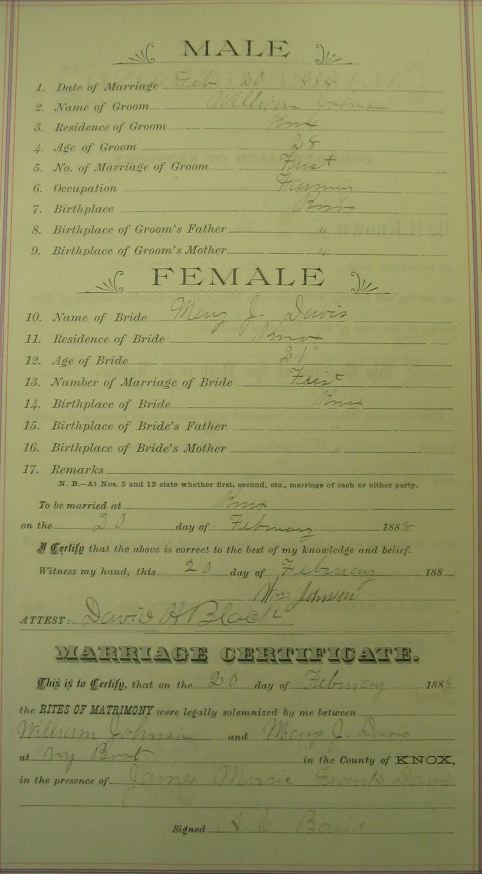 MALE
1. Date of Marriage Feb 20 1888
2. Name of Groom William Johnson
3. Residence of Groom Knox
4. Age of Groom 28
5. No. of Marriage of Groom First
6. Occupation Farming
7. Birthplace Knox
8. Birthplace of Groom's Father "
9. Birthplace of Groom's Mother "
FEMALE
10. Name of Bride Mary J. Davis
11. Residence of Bride Knox
12. Age of Bride 21
13. Number of Marriage of Bride First
14. Birthplace of Bride Knox
15. Birthplace of Bride's Father "
16. Birthplace of Bride's Mother
17. Remarks
N. B.—At Nos. 5 and 13 state whether first, second, etc., marriage of each or either party.
To be married at Knox
on the 20 day of February 1888
I Certify that the above is correct to the best of my knowledge and belief.
Witness my hand, this 20 day of February 188
Wm Johnson
ATTEST: David H Black
MARRIAGE CERTIFICATE.
This is to Certify, that on the 20 day of February 1888
the RITES OF MATRIMONY were legally solemnized by me between
William Johnson and Mary J. Davis
at in the County of KNOX,
in the presence of James Frank Davis
Signed